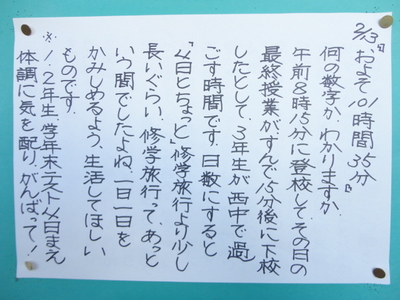 2/13 "およそ101時間35分"
何の数字か、わかりますか。
午前8時15分に登校して、その日の
最終授業がすんで15分後に下校
したとして、3年生が西中で過
ごす時間です。日数にすると
「4日とちょっと」修学旅行より少し
長いぐらい。修学旅行って、あっと
いう間でしたよね。一日一日を
かみしめるよう、生活してほしい
ものです。
※1、2年生、学年末テスト4日まえ
体調に気を配り、がんばって！